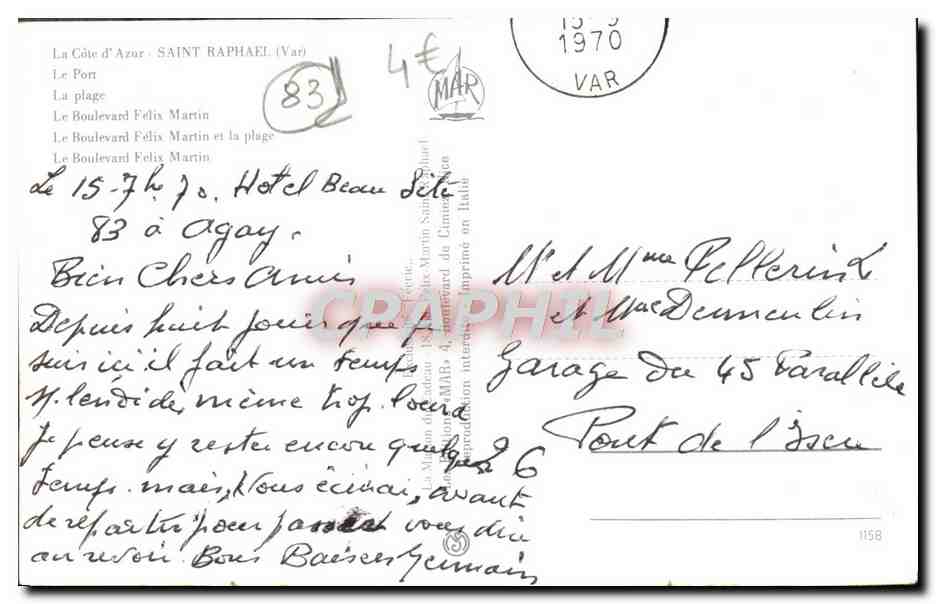 La Côte d'Azur - SAINT RAPHAEL (Var)
Le Port
La plage
Le Boulevard Félix Martin
Le Boulevard Félix Martin et la plage
Le Boulevard Félix Martin
83
4 €
MAR
15-9
1970
VAR
Le 15-7h. 70. Hotel Beau Site
83 à Agay.
Bien Chers Amis
Depuis huit jours que je
suis ici il fait un temps
splendide, même trop lourd
Je pense y rester encore quelques
temps. mais, Vous écrirai, avant
de repartir pour vous dire
au revoir. Bons Baisers Germain
Mr et Mme Pellerin
et Mme Dumoulin
Garage du 45 Parallèle
Pont de l'Isère
26
La Maison du Cadeau - 18, Félix-Martin Saint-Raphael
Les Editions «MAR» 4, boulevard de Cimiez Nice
Reproduction interdite Imprimé en Italie
CRAPHIL
1158